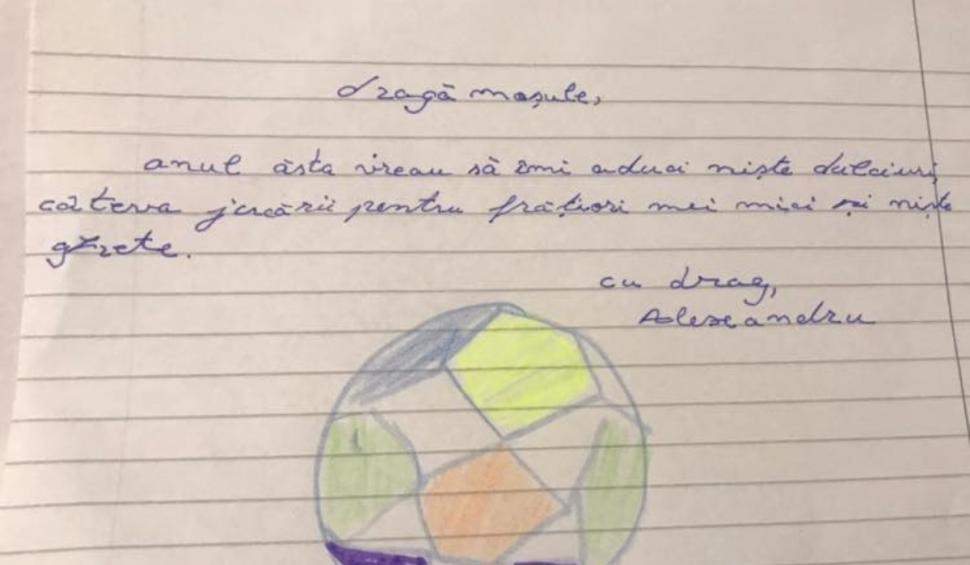 dragă moșule,
anul ăsta vreau să îmi aduci niște dulciuri,
câteva jucării pentru frățiori mei mici și niște
ghete.
cu drag,
Alexandru